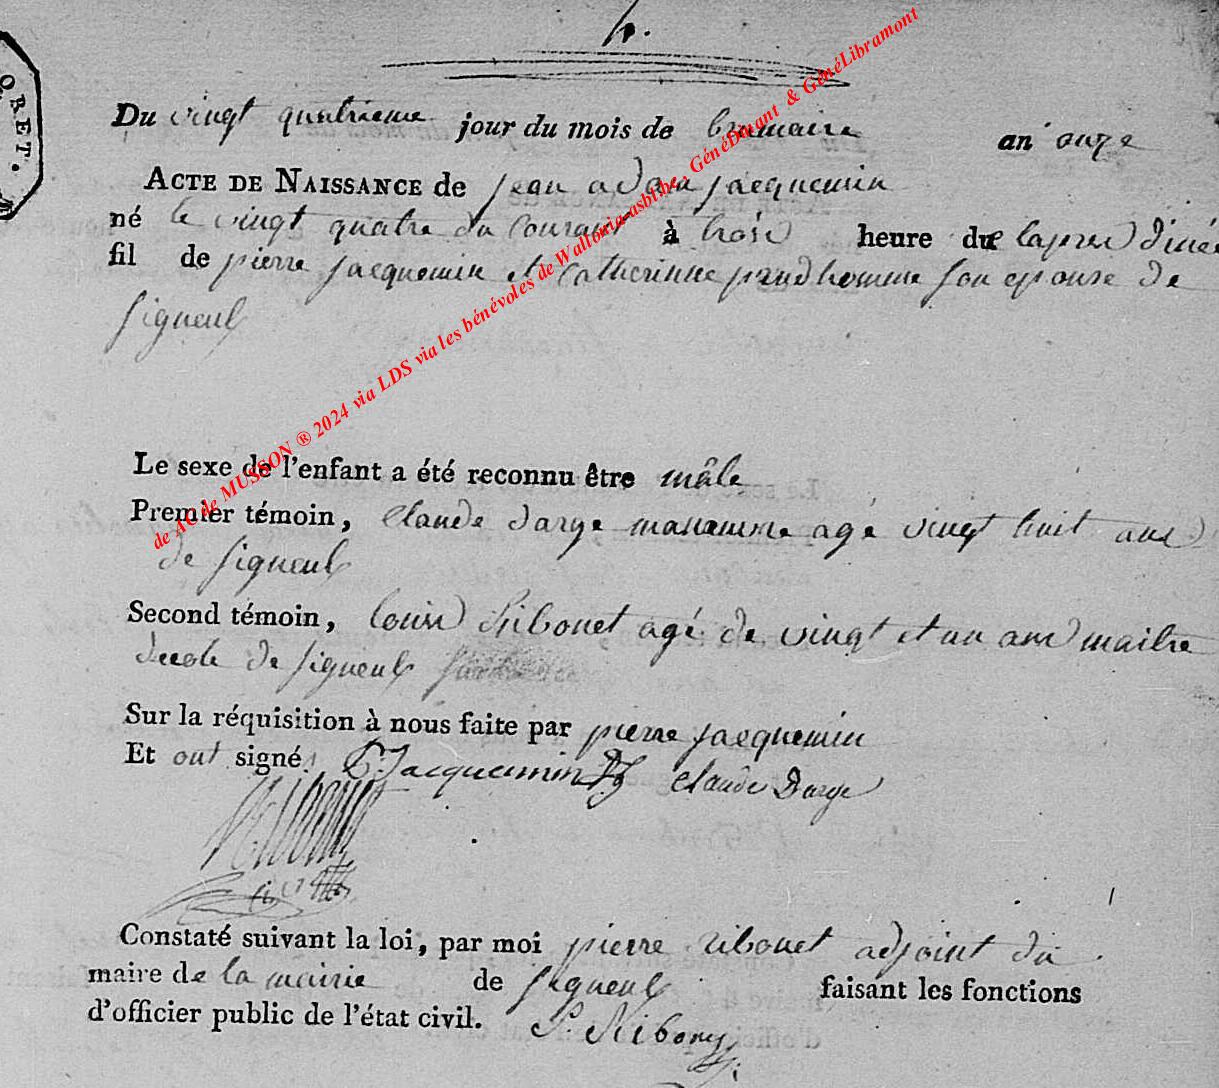 h.
ORET.
Du vingt quatrieme jour du mois de brumaire an onze
ACTE DE NAISSANCE de jean adam jacquemin
né le vingt quatre du courant à trois heure du lapres dinée
fil de pierre jacquemin et catherinne prudhomme son epouse de
signeulx
Le sexe de l'enfant a été reconnu être mâle
Premier témoin, claude darge agé vingt huit ans
de signeulx
Second témoin, louis Ribonet agé de vingt et un ans maitre
decole de signeulx
Sur la réquisition à nous faite par pierre jacquemin
Et ont signé. P. Jacquemin claude Darge
Constaté suivant la loi, par moi pierre ribonet adjoint du
maire de la mairie de signeulx faisant les fonctions
d'officier public de l'état civil. P. Ribony
de AC de MUSSON ® 2024 via LDS via les bénévoles de Wallonia-asbl.be, GénéDinant & GénéLibramont